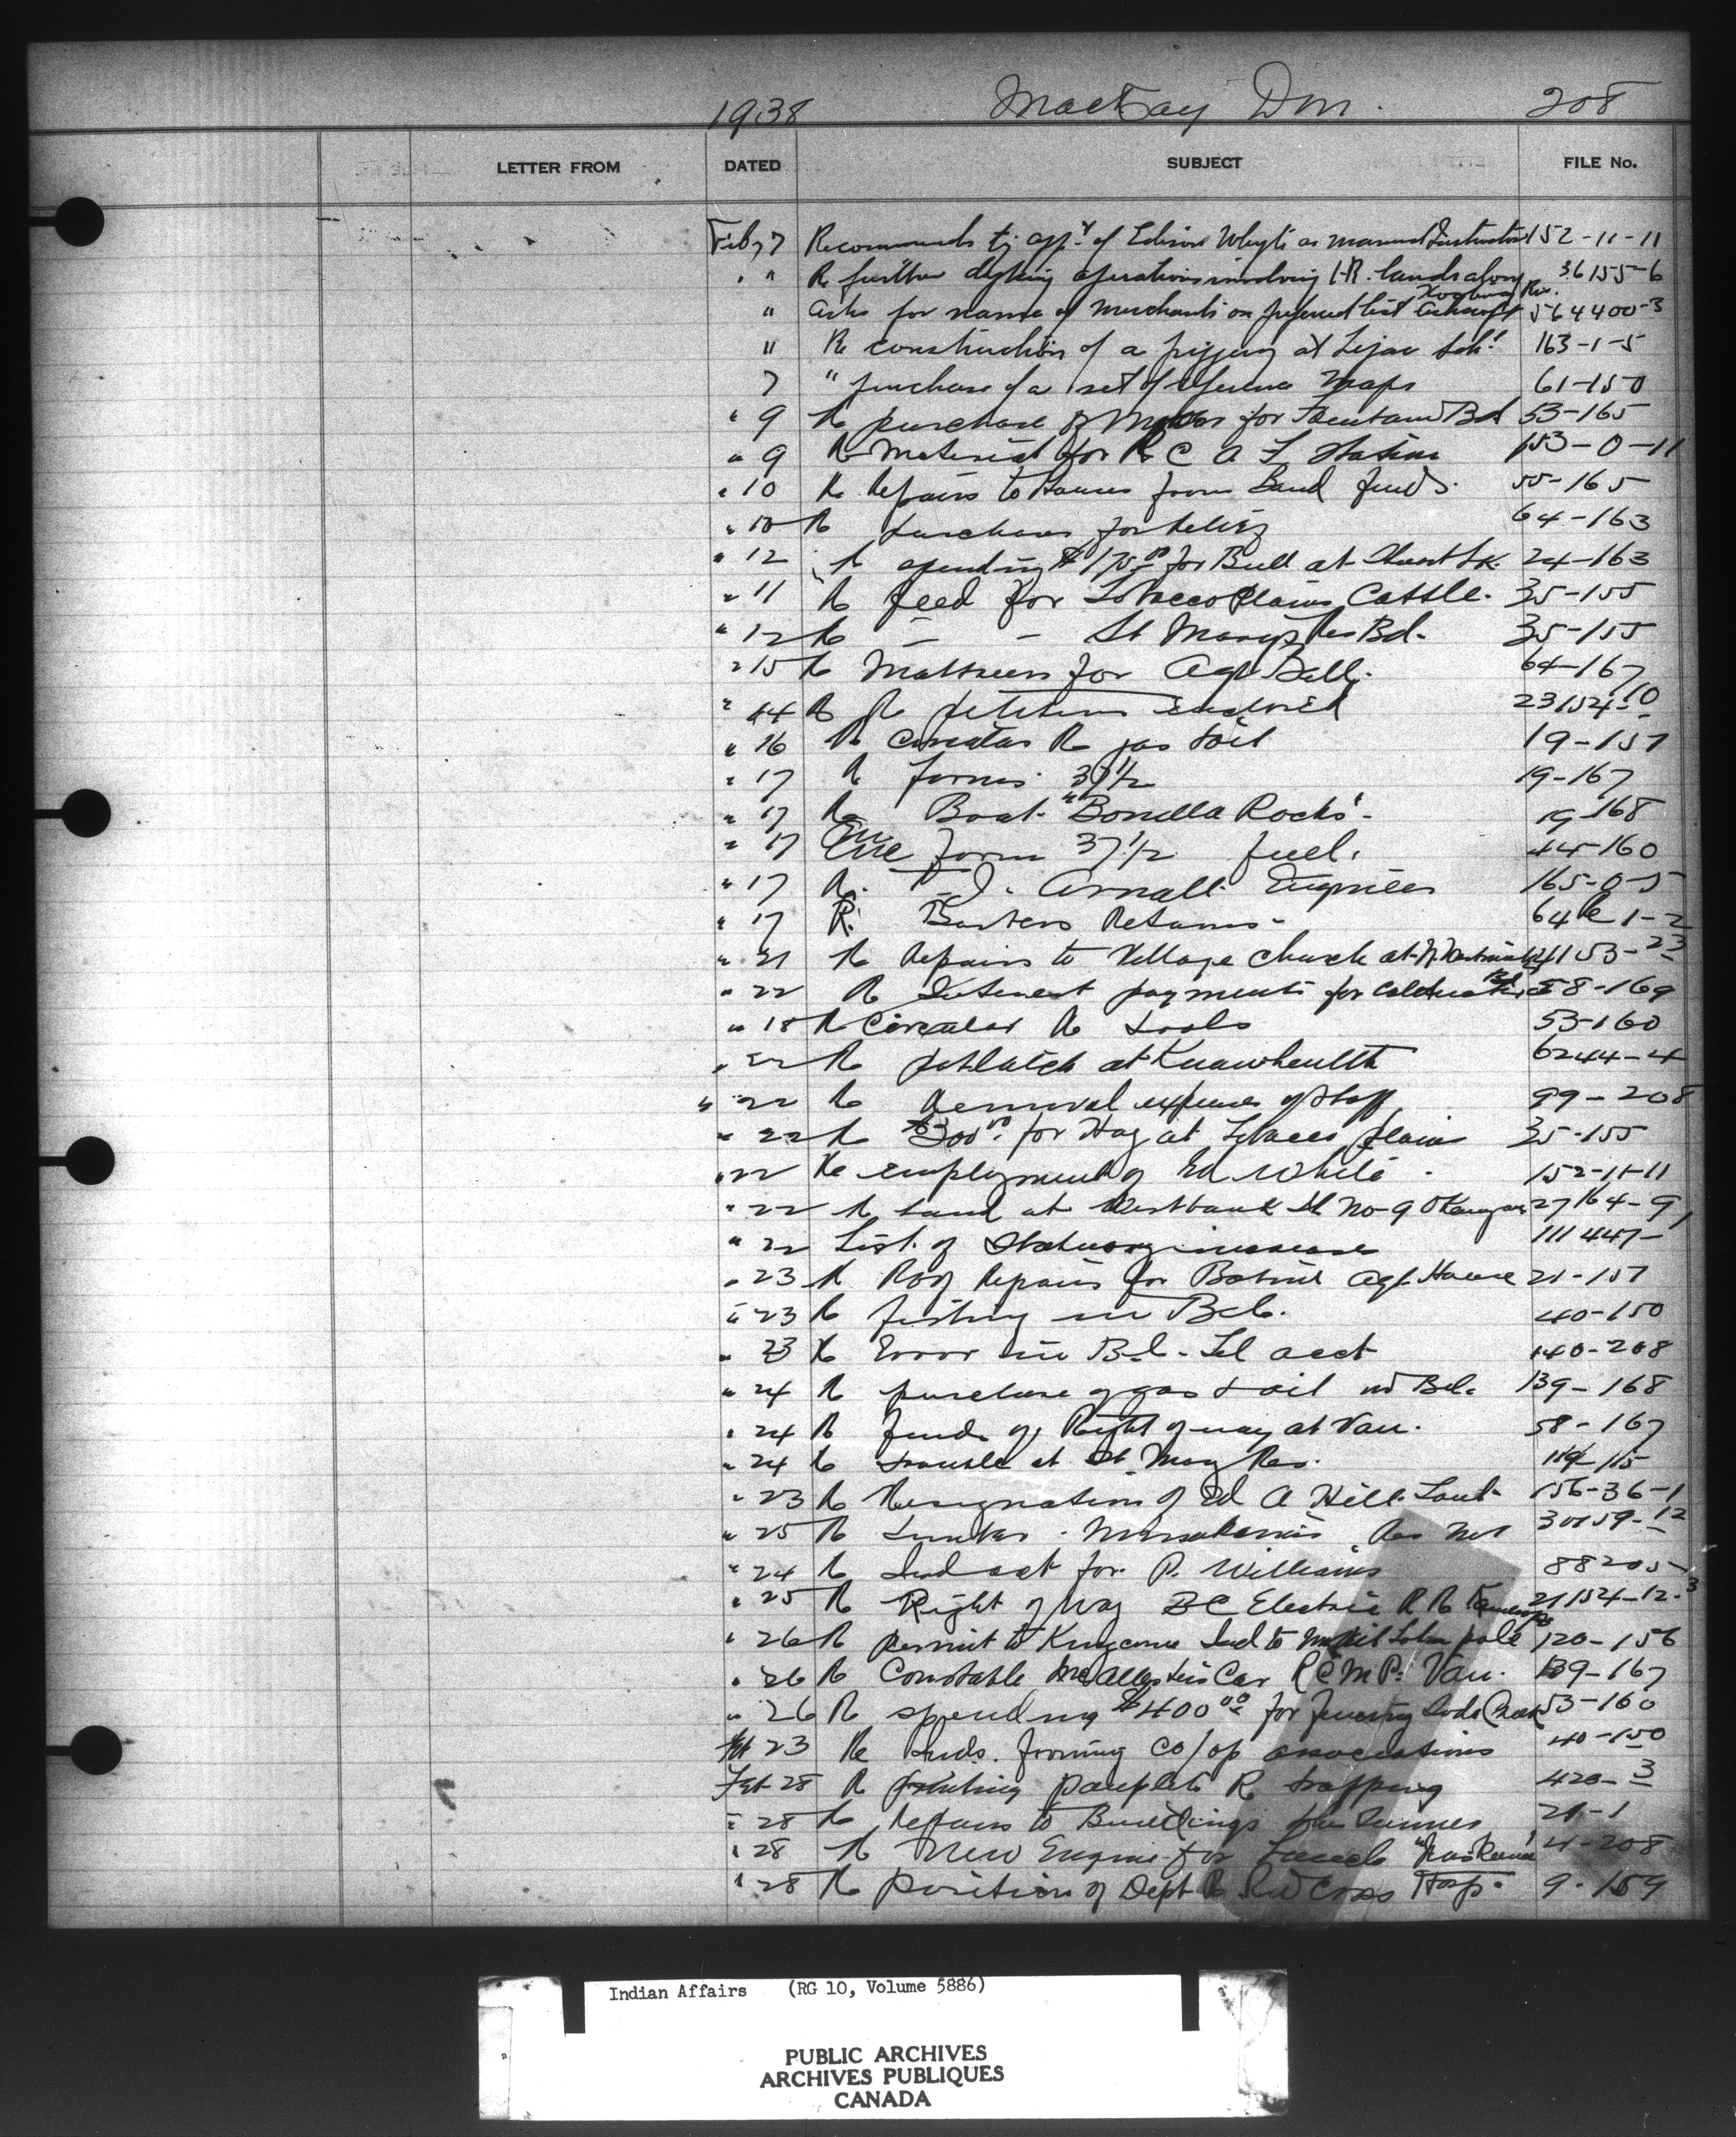 1938 MacKay Dm. 208
LETTER FROM DATED SUBJECT FILE No.
Feb, 7 Recommends appt of Edison Whyte as manual Instructor 152-11-11
" " Re further dyking operations involving I.R. lands along Riv. 36155-6
" Asks for name of merchants on preferred list Ashcroft 564400-3
" Re construction of a piggery at Lejac Schl 163-1-5
7 " purchase of a set of reference maps 61-150
" 9 Re purchase of for Fountain Bd 53-165
" 9 Re Material for R C A F Station 153-0-11
" 10 Re Repairs to Houses from Band funds. 55-165
" 10 Re purchases for Relief 64-163
" 12 Re spending $175.00 for Bull at Lk. 24-163
" 11 Re feed for Tobacco Plains Cattle. 35-155
" 12 Re – – St Marys Bd. 35-155
" 15 Re Mattress for Agt Ball. 64-167
" 14 Re Re petition enclosed 23154-10
" 16 Re Circular Re gas & oil 19-157
" 17 Re forms 37 1/2 19-167
" 17 Re Boat "Bonilla Rocks" 19-168
" 17 form 37 1/2 fuel. 44-160
" 17 Re. Arnall Engineer 165-0-5
" 17 Re Returns - 64 1-2
" 21 Re Repairs to Village church at N. 41153-23
" 22 Re Interest payments for Coldwater Bd 58-169
" 18 Re Circular Re tools 53-160
" 22 Re potlatch at 6244-4
" 22 Re Removal expenses of staff 99-208
" 22 Re $300.00 for Hay at Tobacco plains 35-155
" 22 Re employment of Ed White 152-11-11
" 22 Re Land at Westbank IR No-9 Okanagan 27164-9
" 22 List of Statutory increases 111447-1
" 23 Re Roof Repairs for Agt. House 21-157
" 23 Re fishing in B.C. 40-150
" 23 Re Error in B.C. Tel acct 140-208
" 24 Re purchase of gas & oil in B.C. 139-168
" 24 Re funds of Right of way at Van. 58-167
" 24 Re trouble at St Mary Res. 119-115
" 23 Re Resignation of Ed A Hill 156-36-1
" 25 Re Timber Res No 1 30159-12
" 24 Re for P. Williams 88205-
" 25 Re Right of Way BC Electric R R 21154-12-3
" 26 Re permit to Kingcome Ind to pole 120-156
" 26 Re Constable McAllesters Car R C M P. Van. 139-167
" 26 Re spending $400.00 for fencing Soda Creek 53-160
Feb 23 Re Inds. forming Co/op associations 40-150
Feb 28 Re printing pamplets Re trapping 420-3
" 28 Re Repairs to Buildings 21-1
" 28 Re New Engine for Launch 4-208
" 28 Re Position of Dept Re Red Cross Hosp. 9-159
Indian Affairs (RG 10, Volume 5886)
PUBLIC ARCHIVES
ARCHIVES PUBLIQUES
CANADA